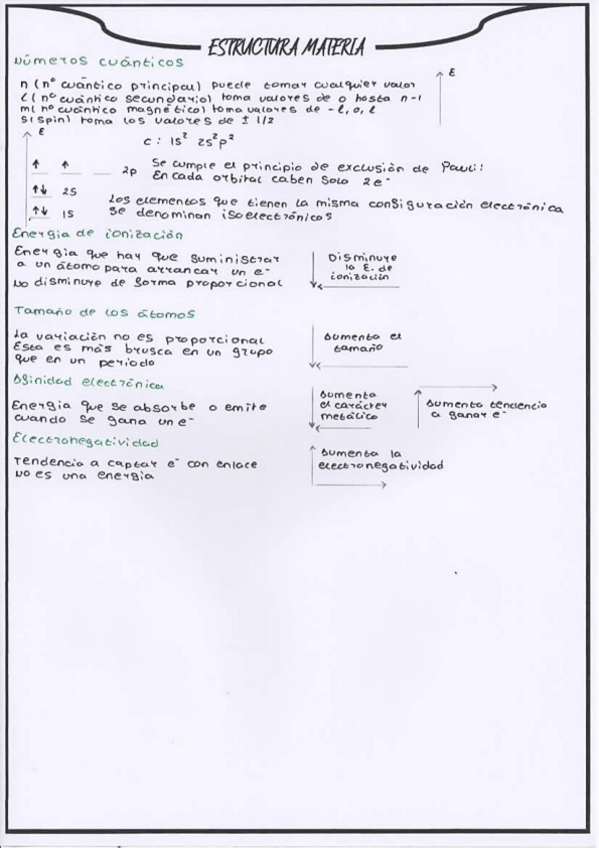 ESTRUCTURA MATERIA
Números cuánticos
n (nº cuántico principal) puede tomar cualquier valor
l (nº cuántico secundario) toma valores de 0 hasta n-1
m (nº cuántico magnético) toma valores de -l, 0, l
s (spin) toma los valores de ± 1/2
E
E
C: 1s² 2s²p²
2p
2s
1s
Se cumple el principio de exclusión de Pauli:
En cada orbital caben solo 2e⁻
Los elementos que tienen la misma configuración electrónica
se denominan isoelectrónicos
Energia de ionización
Energia que hay que suministrar
a un átomo para arrancar un e⁻
No disminuye de forma proporcional
Disminuye
la E. de
ionización
Tamaño de los átomos
La variación no es proporcional
Esta es más brusca en un grupo
que en un periodo
Aumenta el
tamaño
Afinidad electrónica
Energia que se absorbe o emite
cuando se gana un e⁻
Aumenta
el carácter
metálico
Aumenta tendencia
a ganar e⁻
Electronegatividad
Tendencia a captar e⁻ con enlace
No es una energia
Aumenta la
electronegatividad